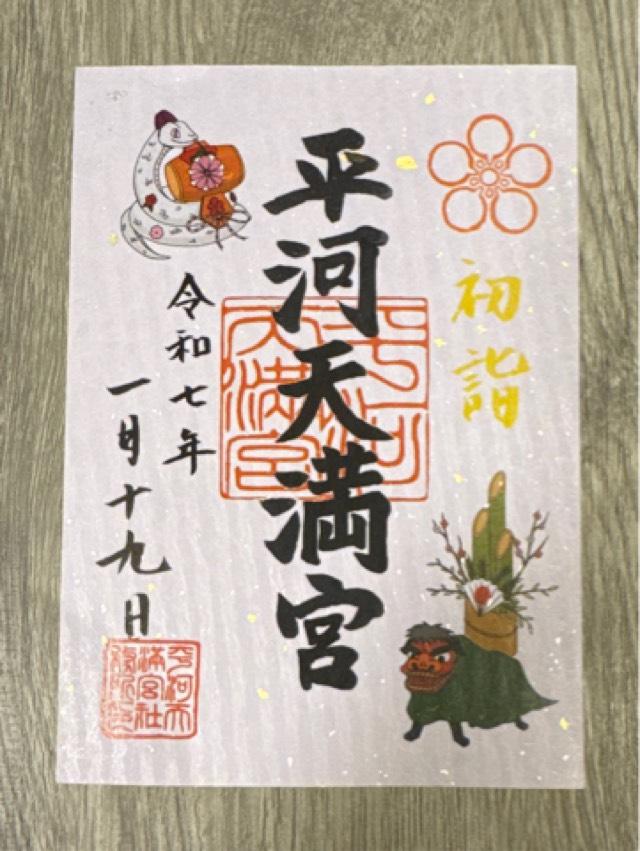 初詣
平河天満宮
令和七年
一月十九日
平河天
満宮社
務所印